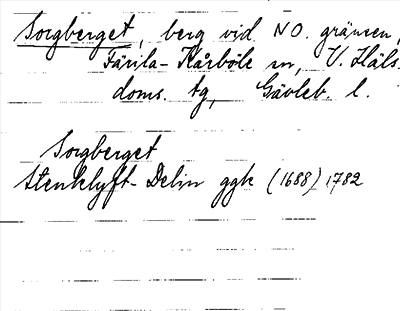 Sorgberget, berg vid NO. gränsen,
Färila-Kårböle sn, V. Häls.
doms. tg, Gävleb. l.
Sorgberget
Stenklyft-Delin ggk (1688) 1782